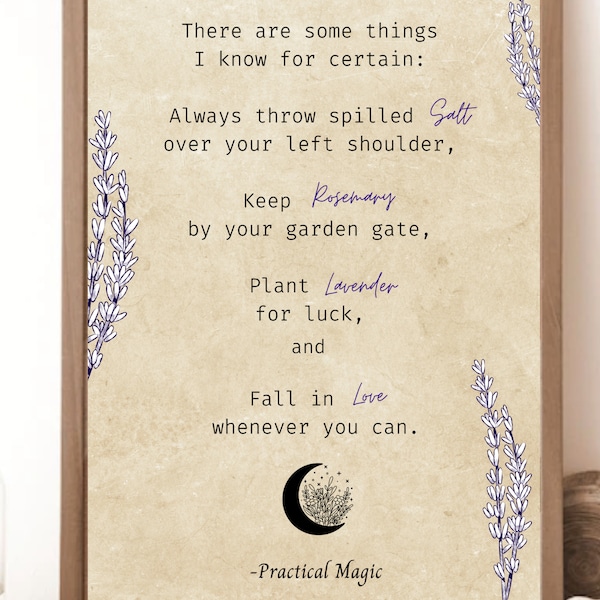 There are some things
I know for certain:
Always throw spilled Salt
over your left shoulder,
Keep Rosemary
by your garden gate,
Plant Lavender
for luck,
and
Fall in Love
whenever you can.
-Practical Magic